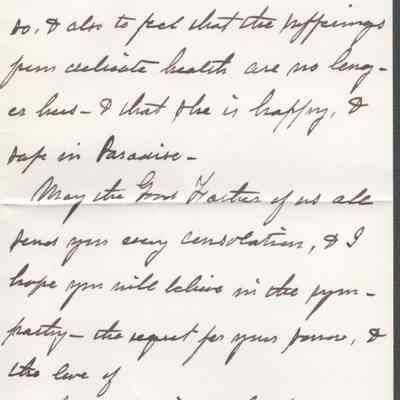 so, & also to feel that the sufferings
from delicate health are no long-
er hers - & that she is happy, &
safe in Paradise -
May the Good Father of us all
send you every consolation, & I
hope you will believe in the sym-
pathy - the regret for your sorrow, &
the love of